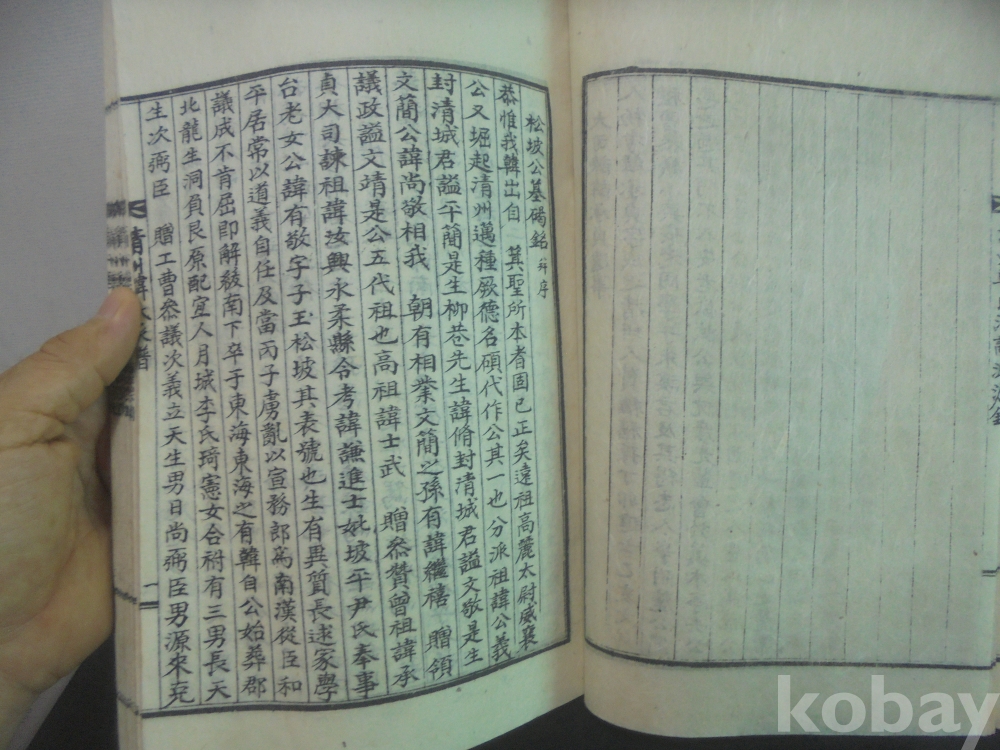 松坡公墓碣銘 幷序
恭惟我韓出自 箕聖所本者固已正矣遠祖高麗太尉威襄
公又堀起清州邁種厥德名碩代作公其一也分派祖諱公義
封清城君謚平簡是生柳巷先生諱脩封清城君謚文敬是生
文簡公諱尚敬相我 朝有相業文簡之孫有諱繼禧 贈領
議政謚文靖是公五代祖也高祖諱士武 贈叅贊曾祖諱承
貞大司諫祖諱汝興永柔縣令考諱謙進士妣坡平尹氏奉事
台老女公諱有敬字子玉松坡其表號也生有異質長逑家學
平居常以道義自任及當丙子虜亂以宣務郎爲南漢從臣和
議成不肯屈即解紱南下卒于東海東海之有韓自公始葬郡
北龍生洞負艮原配宜人月城李氏琦憲女合祔有三男長天
生次弼臣 贈工曹叅議次義立天生男日尚弼臣男源來克
一
kobay